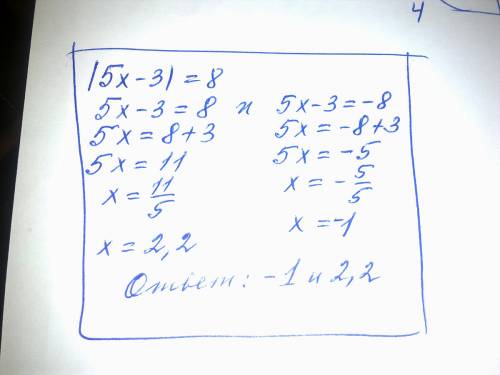 4
|5x-3| = 8
5x-3=8 и 5x-3=-8
5x=8+3 5x=-8+3
5x=11 5x=-5
x=11/5 x=-5/5
x=2,2 x=-1
Ответ: -1 и 2,2